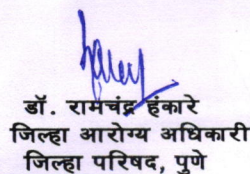 डॉ. रामचंद्र हंकारे
जिल्हा आरोग्य अधिकारी
जिल्हा परिषद, पुणे